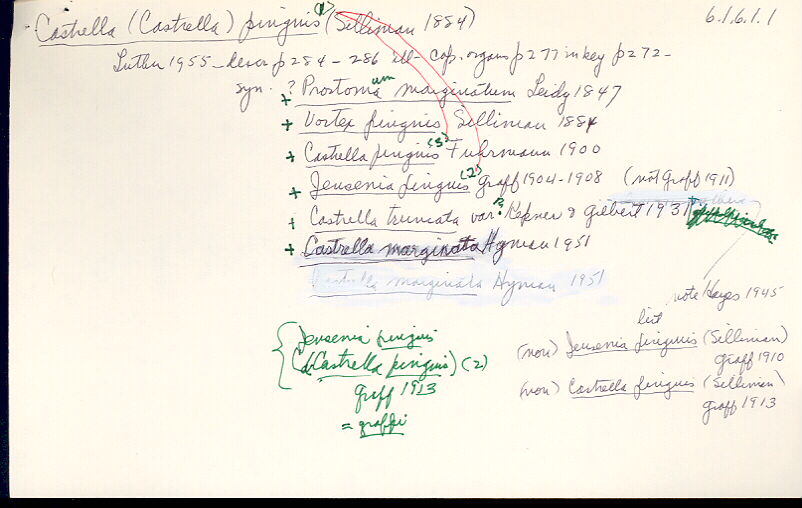 Castrella (Castrella) pinguis (Silliman 1884) 6.1.6.1.1
Luther 1955 - descr p 284 - 286 ill - cop. organs p 277 in key p 272 -
syn. ? Prostomum marginatum Leidy 1847
+ Vortex pinguis Silliman 1884
+ Castrella pinguis (3) Fuhrmann 1900
+ Jensenia pinguis (2) Graff 1904-1908 (not Graff 1911)
+ Castrella truncata var.? Kepner & Gilbert 1931
+ Castrella marginata Hyman 1951
Castrella marginata Hyman 1951
note Hayes 1945
list
(non) Jensenia pinguis (Silliman)
graff 1910
(non) Castrella pinguis (Silliman)
graff 1913
Jensenia pinguis
(Castrella pinguis) (2)
Graff 1913
= graffi